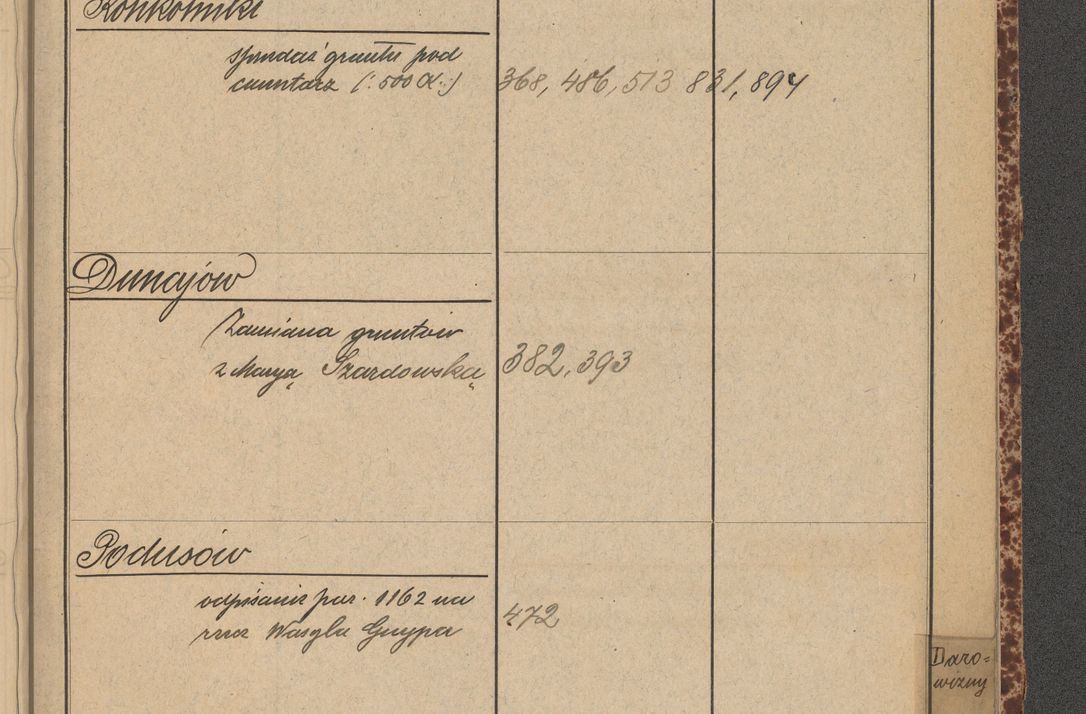 Konkolniki
sprzedaż gruntu pod
cmentarz (: 500 Zł. :) 368, 486, 513 831, 894
Dunajów
Zamiana gruntów
z Maryą Szardowską 382, 393
Podusów
odpisanie par. 1162 na
rzecz Wasyla Gnypa 472
Daro=
wizny